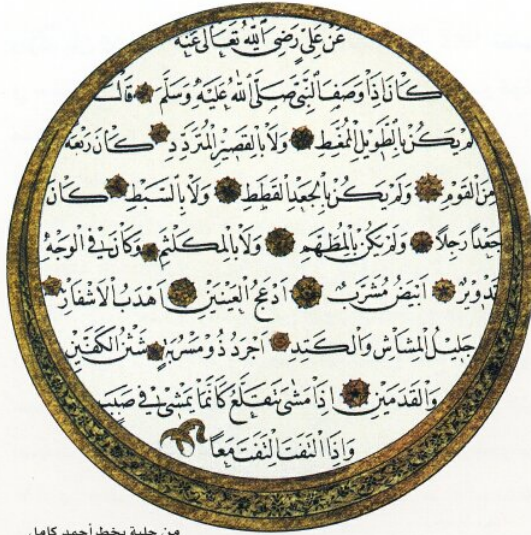 عَنْ عَلِيٍّ رَضِيَ اللهُ تَعَالَى عَنْهُ
كَانَ إِذَا وَصَفَ النَّبِيَّ صَلَّى اللهُ عَلَيْهِ وَسَلَّمَ قَالَ
لَمْ يَكُنْ بِالطَّوِيلِ الْمُمَّغِطِ وَلَا بِالْقَصِيرِ الْمُتَرَدِّدِ كَانَ رَبْعَةً
مِنَ الْقَوْمِ وَلَمْ يَكُنْ بِالْجَعْدِ الْقَطَطِ وَلَا بِالسَّبَطِ كَانَ
جَعْدًا رَجِلًا وَلَمْ يَكُنْ بِالْمُطَهَّمِ وَلَا بِالْمُكَلْثَمِ وَكَانَ فِي الْوَجْهِ
تَدْوِيرٌ أَبْيَضُ مُشْرَبٌ أَدْعَجُ الْعَيْنَيْنِ أَهْدَبُ الْأَشْفَارِ
جَلِيلُ الْمُشَاشِ وَالْكَتَدِ أَجْرَدُ ذُو مَسْرُبَةٍ شَثْنُ الْكَفَّيْنِ
وَالْقَدَمَيْنِ إِذَا مَشَى تَقَلَّعَ كَأَنَّمَا يَمْشِي فِي صَبَبٍ
وَإِذَا الْتَفَتَ الْتَفَتَ مَعًا
من حلية بخط أحمد كامل